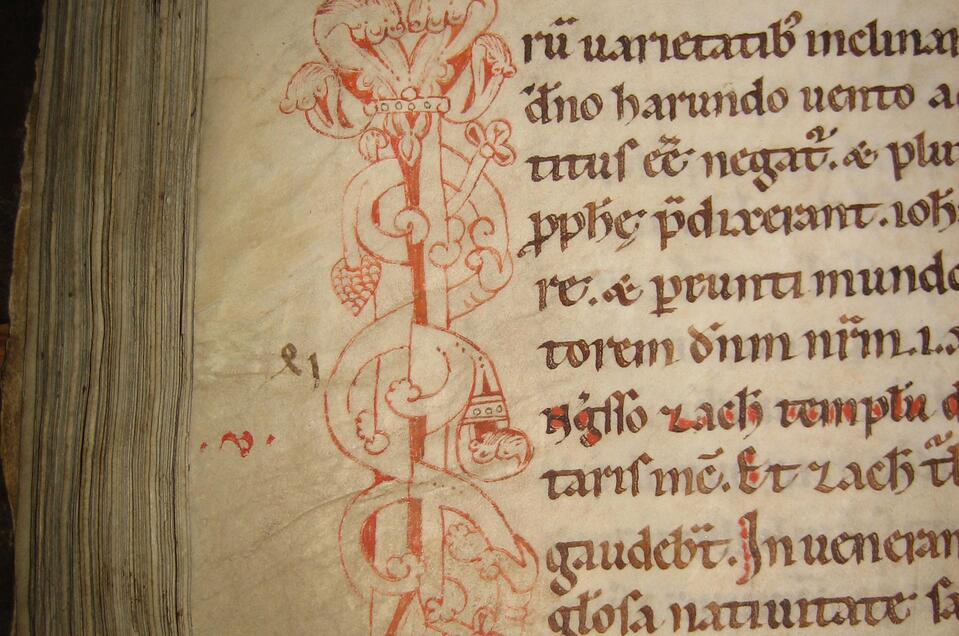 rū uarietatib᷒ inclinar
d̄no harundo uento a
titus eē negat᷑. & plu
pph̄ę p̄dixerant. ioh
re. & p̱eunti mundo
torem d̄nm nr̄m. i.
ngͥsso zach̄ templū d
taris inc̄. Et zach̄
gaudebt̄. In ueneran
gl̄osa natiuitate sa
&i
.v.